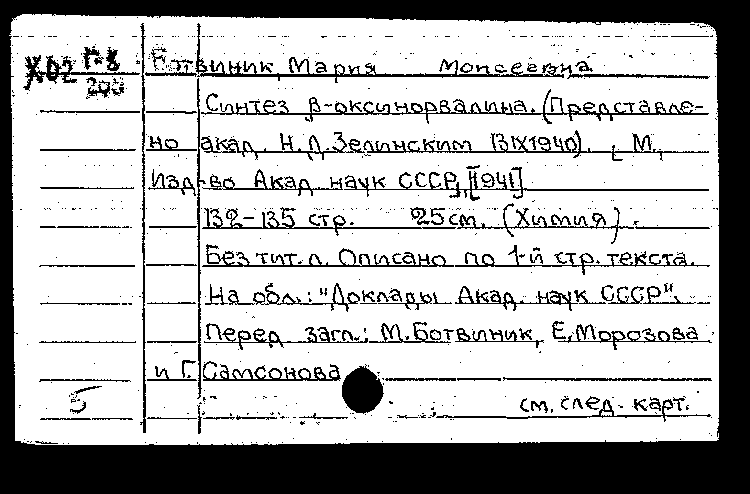 Х02 Г-8
200
Ботвиник, Мария Моисеевна
Синтез β-оксинорвалина. (Представле-
но акад. Н.Д. Зелинским 13IX1940). [М.,
Изд-во Акад. наук СССР, [1941].
132-135 стр. 25 см. (Химия).
Без тит. л. Описано по 1-й стр. текста.
На обл.: "Доклады Акад. наук СССР".
Перед загл.: М. Ботвиник, Е. Морозова
и Г. Самсонова
5
см. след. карт.